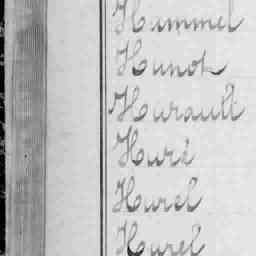 Hummel
Hunot
Hurault
Huré
Hurel
Hurel